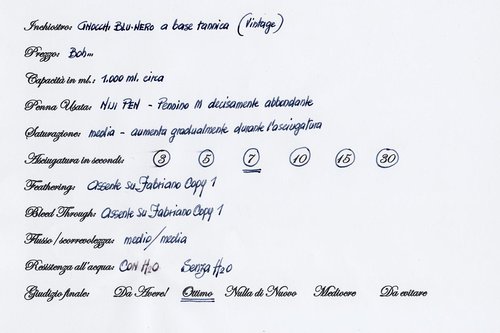 Inchiostro: GNOCCHI BLU-NERO a base tannica (Vintage)
Prezzo: Boh...
Capacità in ml.: 1.000 ml. circa
Penna Usata: NIJI PEN - Pennino M decisamente abbondante
Saturazione: media - aumenta gradualmente durante l'asciugatura
Asciugatura in secondi: 3 5 7 10 15 30
Feathering: Assente su Fabriano Copy 1
Bleed Through: Assente su Fabriano Copy 1
Flusso/scorrevolezza: medio/media
Resistenza all'acqua: CON H2O Senza H2O
Giudizio finale: Da Avere! Ottimo Nulla di Nuovo Mediocre Da evitare